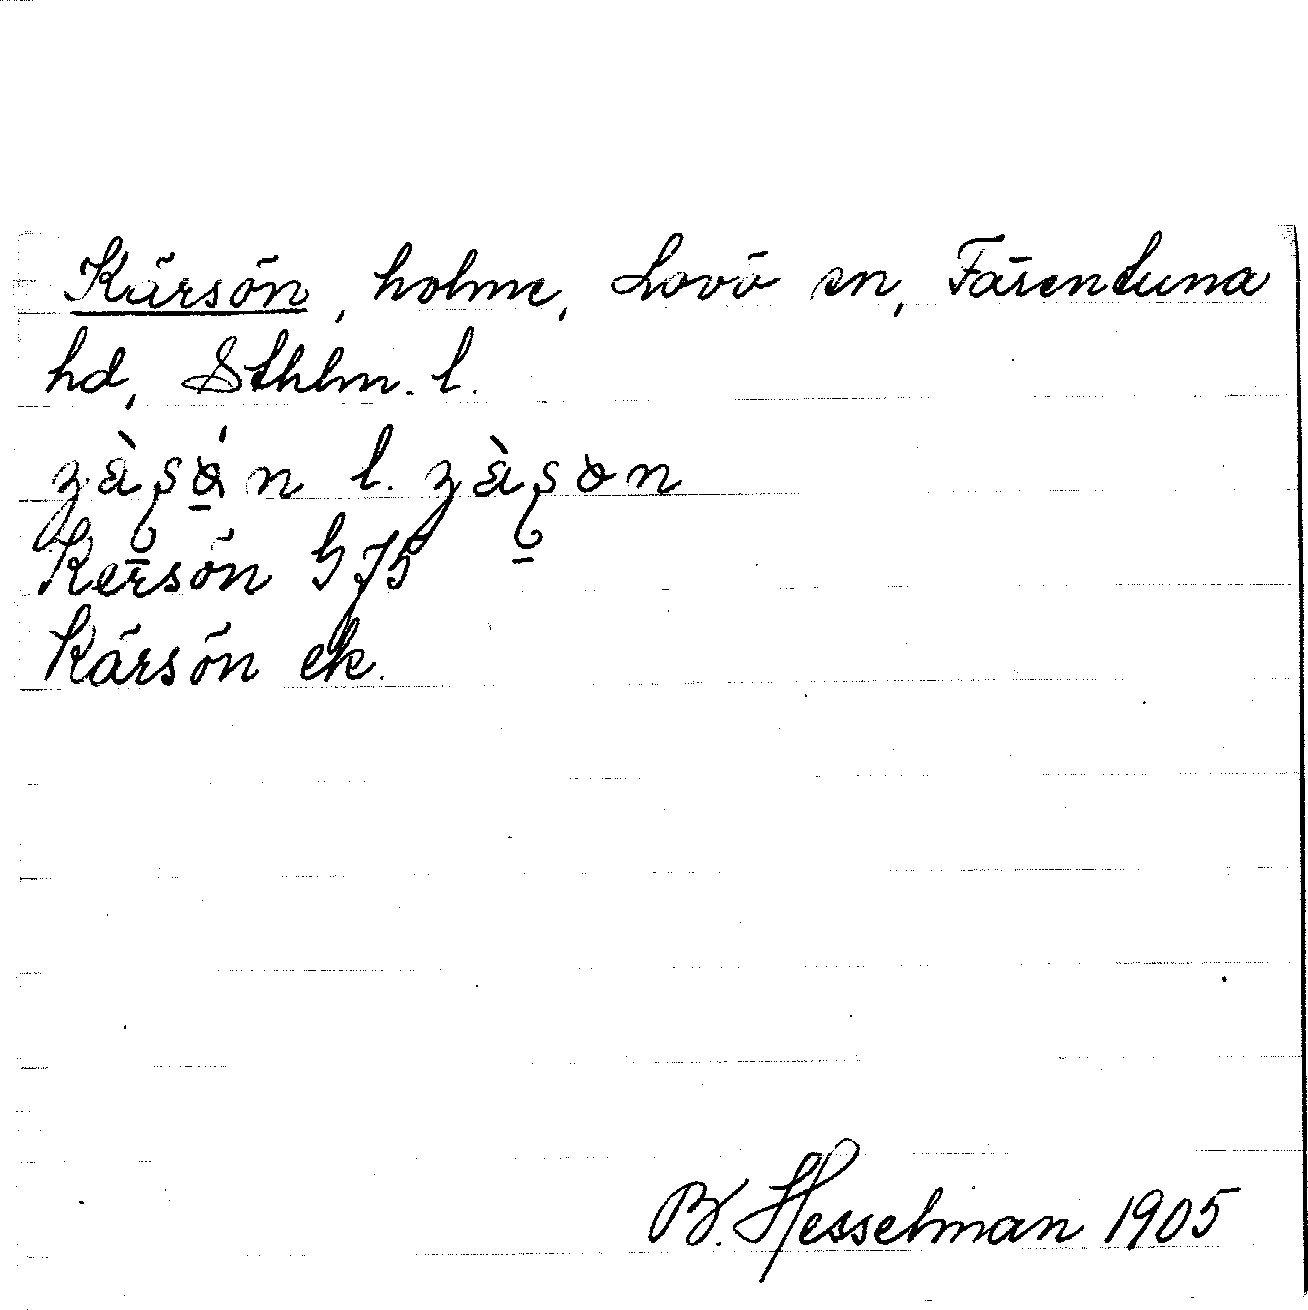 Kärsön, holme, Lovö sn, Färentuna
hd, Sthlm. l.
l.
Kersön GJ5
Kärsön ek.
B. Hesselman 1905